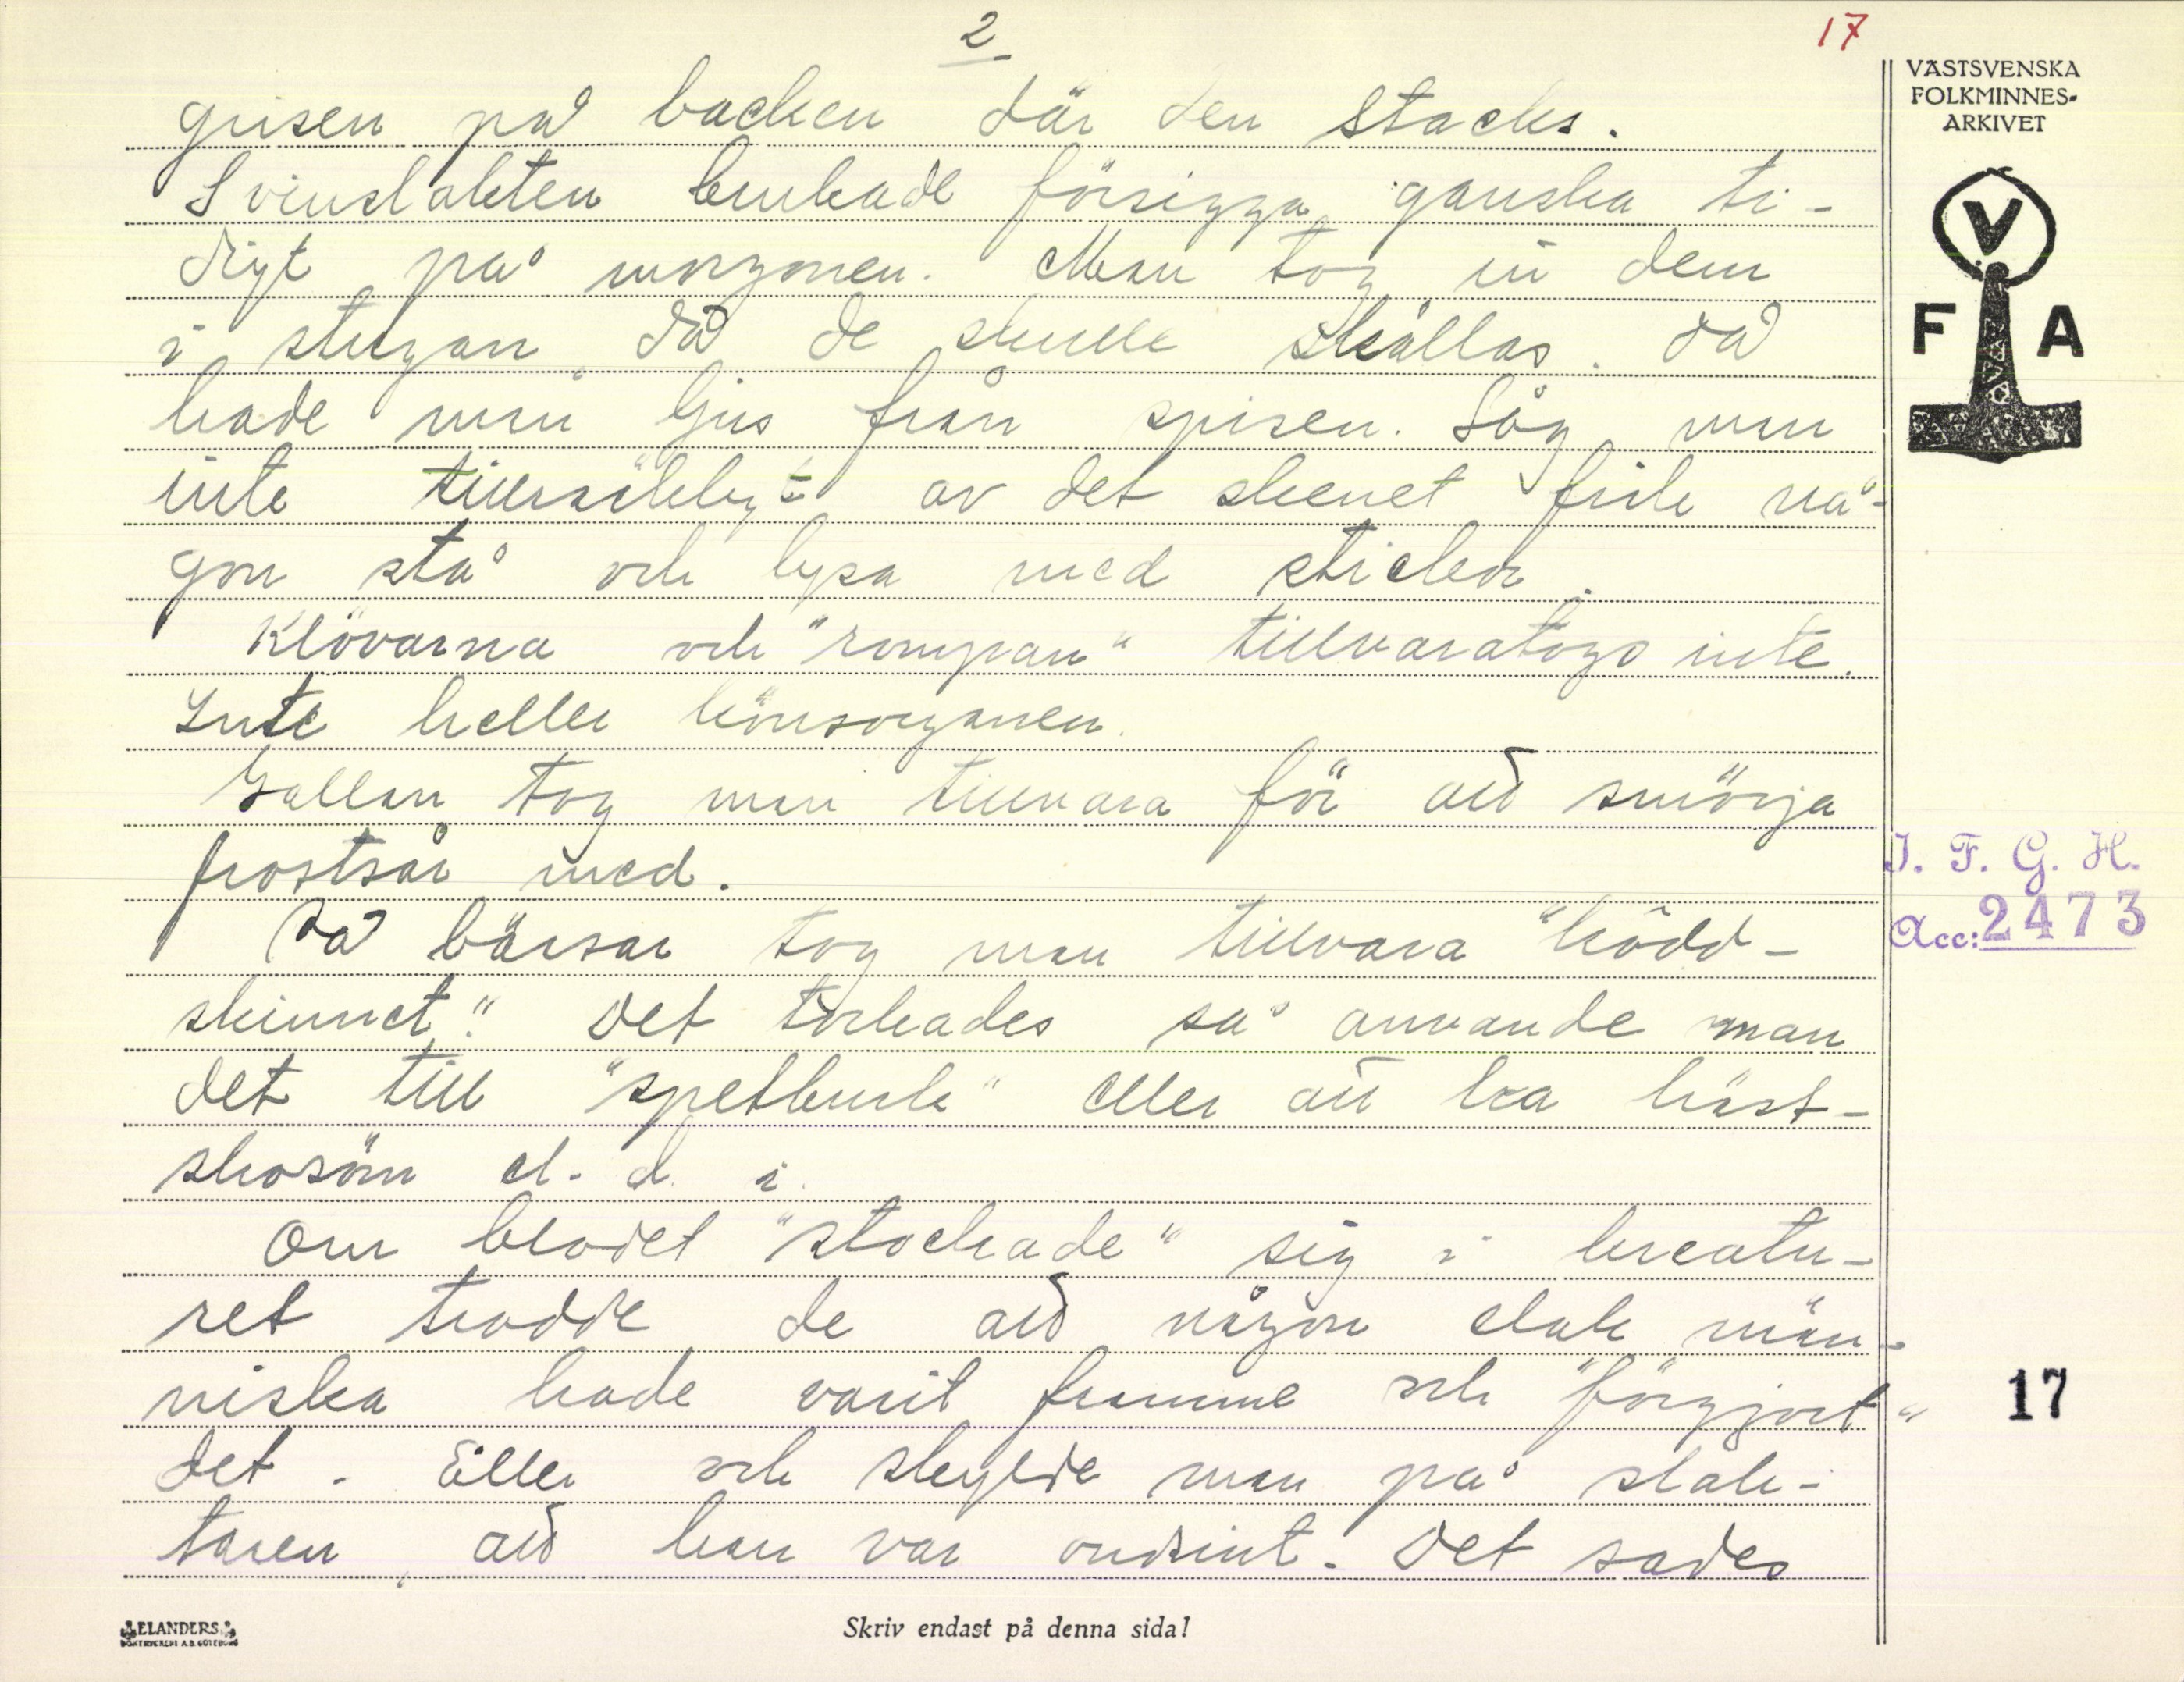 2
17
VÄSTSVENSKA
FOLKMINNES-
ARKIVET
V
F A
grisen på backen där den stacks.
Svinslakten brukade försiggå ganska ti-
digt på morgonen. Man tog in dem
i stugan då de skulle skållas. Då
hade man ljus från spisen. Såg man
inte tillräckligt av det skenet fick nå-
gon stå och lysa med stickor.
Klövarna och "rompan" tillvaratogs inte.
Inte heller könsorganen.
Gallan tog man tillvara för att smörja
frostsår med.
På bärsar tog man tillvara "ködd-
skinnet." Det torkades så anvande man
det till "spetburk" eller att ha häst-
skosöm el. d. i.
Om blodet "stockade" sig i kreatu-
ret trodde de att någon elak män-
niska hade varit framme och "förgjort"
det. Eller och skyllde man på slak-
taren, att han var ondsint. Det sades
I. F. G. H.
Acc: 2473
17
ELANDERS
BOKTRYCKERI A.B. GÖTEBORG
Skriv endast på denna sida!